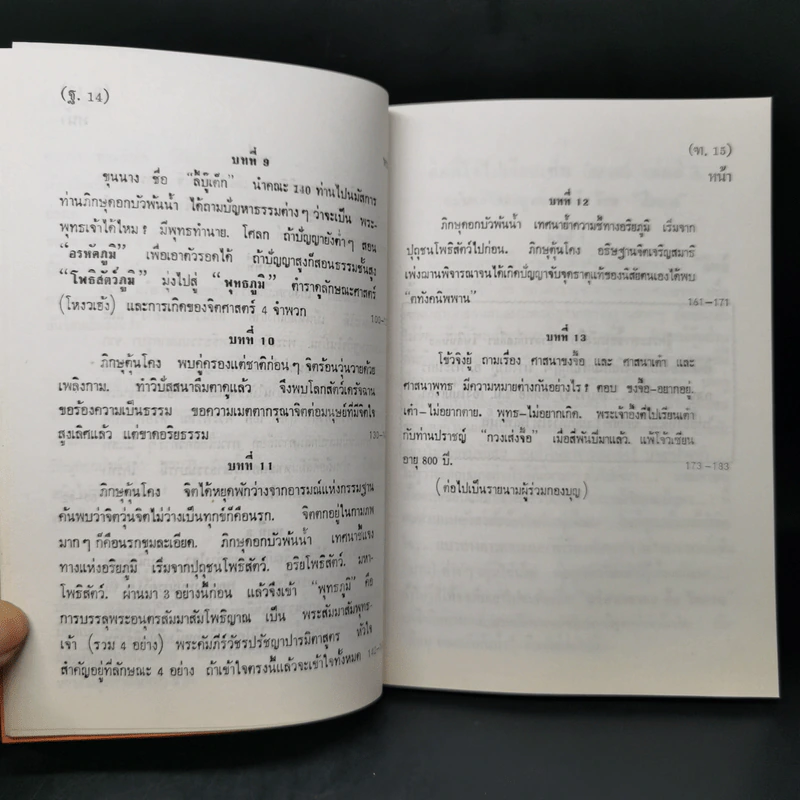 (ฐ. 14)
บทที่ 9
ขุนนาง ชื่อ "ลีบุ๊เต็ก" นำคณะ 140 ท่านไปนมัสการ
ท่านภิกษุดอกบัวพ้นน้ำ ได้ถามปัญหาธรรมต่างๆ ว่าจะเป็น พระ-
พุทธเจ้าได้ไหม? มีพุทธทำนาย. โศลก ถ้าปัญญายังต่ำๆ สอน
"อรหัตภูมิ" เพื่อเอาตัวรอดได้ ถ้าปัญญาสูงก็สอนธรรมชั้นสูง
"โพธิสัตว์ภูมิ" มุ่งไปสู่ "พุทธภูมิ" ตำราดูลักษณะศาสตร์
(โหงวเฮ้ง) และการเกิดของจิตศาสตร์ 4 จำพวก
บทที่ 10
ภิกษุตุ้นโคง พบคู่ครองแต่ชาติก่อนๆ จิตร้อนวุ่นวายด้วย
เพลิงกาม. ทำวิปัสสนาลืมตาดูแล้ว จึงพบโลกสัตว์เดรัจฉาน
ขอร้องความเป็นธรรม ขอความเมตตากรุณาจิตต่อมนุษย์ที่มีจิตใจ
สูงเลิศแล้ว แต่ขาดอริยธรรม
บทที่ 11
ภิกษุตุ้นโคง จิตได้หยุดพักว่างจากอารมณ์แห่งกรรมฐาน
ค้นพบว่าจิตวุ่นจิตไม่ว่างเป็นทุกข์ก็คือนรก. จิตตกอยู่ในกามภพ
มากๆ ก็คือนรกขุมละเอียด. ภิกษุดอกบัวพ้นน้ำ เทศนาชี้แจง
ทางแห่งอริยภูมิ เริ่มจากปุถุชนโพธิสัตว์. อริยโพธิสัตว์. มหา-
โพธิสัตว์. ผ่านมา 3 อย่างนี้ก่อน แล้วจึงเข้า "พุทธภูมิ" คือ
การบรรลุพระอนุตรสัมมาสัมโพธิญาณ เป็น พระสัมมาสัมพุทธ-
เจ้า (รวม 4 อย่าง) พระคัมภีร์วัชรปรัชญาปารมิตาสูตร หัวใจ
สำคัญอยู่ที่ลักษณะ 4 อย่าง ถ้าเข้าใจตรงนี้แล้วจะเข้าใจทั้งหมด
(ฑ. 15)
หน้า
บทที่ 12
ภิกษุดอกบัวพ้นน้ำ เทศนาย้ำความชี้ทางอริยภูมิ เริ่มจาก
ปุถุชนโพธิสัตว์ไปก่อน. ภิกษุตุ้นโคง อธิษฐานจิตเจริญสมาธิ
เพ่งฌานพิจารณาจนได้เกิดปัญญาจับจุดธาตุแท้ของนิสัยตนเองได้พบ
"ตทังคนิพพาน"
161-171
บทที่ 13
โข้วจิงยู้ ถามเรื่อง ศาสนาขงจื๊อ และ ศาสนาเต๋า และ
ศาสนาพุทธ มีความหมายต่างกันอย่างไร? ตอบ ขงจื๊อ-อยากอยู่.
เต๋า-ไม่อยากตาย. พุทธ-ไม่อยากเกิด. พระเจ้าอึ้งตี่ไปเรียนเต๋า
กับท่านปราชญ์ "กวงเส่งจื๊อ" เมื่อสี่พันปีมาแล้ว. แพ้โจ้วเซียน
อายุ 800 ปี.
173-183
(ต่อไปเป็นรายนามผู้ร่วมกองบุญ)